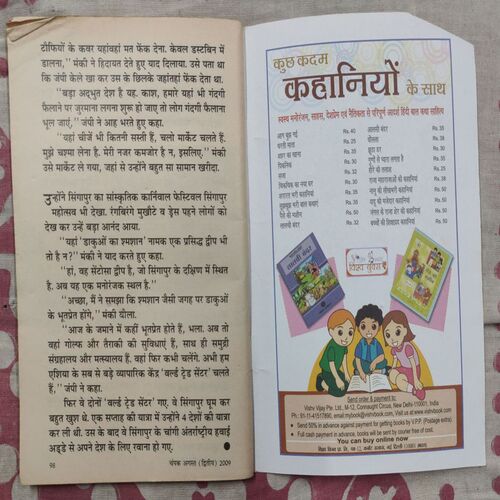 टौफियों के कवर यहांवहां मत फेंक देना. केवल डस्टबिन में
डालना,’’ मंकी ने हिदायत देते हुए याद दिलाया. उसे पता था
कि जंपी केले खा कर उस के छिलके जहांतहां फेंक देता था.
‘‘बड़ा अद्भुत देश है यह. काश, हमारे यहां भी गंदगी
फैलाने पर जुरमाना लगना शुरू हो जाए तो लोग गंदगी फैलाना
भूल जाएं,’’ जंपी ने आह भरते हुए कहा.
‘‘यहां चीजें भी कितनी सस्ती हैं, चलो मार्केट चलते हैं.
मुझे चश्मा लेना है. मेरी नजर कमजोर है न, इसलिए.’’ मंकी
उसे मार्केट ले गया, जहां से उन्होंने बहुत सा सामान खरीदा.
उन्होंने सिंगापुर का सांस्कृतिक कार्निवाल फेस्टिवल सिंगापुर
महोत्सव भी देखा. रंगबिरंगे मुखौटे व ड्रेस पहने लोगों को
देख कर उन्हें बड़ा आनंद आया.
‘‘यहां ‘डाकुओं का श्मशान’ नामक एक प्रसिद्ध द्वीप भी
तो है न?’’ मंकी ने याद करते हुए कहा.
‘‘हां, वह सेंटोसा द्वीप है, जो सिंगापुर के दक्षिण में स्थित
है. अब यह एक मनोरंजक स्थल है.’’
‘‘अच्छा, मैं ने समझा कि श्मशान जैसी जगह पर डाकुओं
के भूतप्रेत होंगे,’’ मंकी बोला.
‘‘आज के जमाने में कहां भूतप्रेत होते हैं, भला. अब तो
वहां गोल्फ और तैराकी की सुविधाएं हैं, साथ ही समुद्री
संग्रहालय और मत्स्यालय हैं. वहां फिर कभी चलेंगे. अभी हम
एशिया के सब से बड़े व्यापारिक केंद्र ‘वर्ल्ड ट्रेड सेंटर’ चलते
हैं,’’ जंपी ने कहा.
फिर वे दोनों ‘वर्ल्ड ट्रेड सेंटर’ गए. वे सिंगापुर घूम कर
बहुत खुश थे. एक सप्ताह की यात्रा में उन्होंने 4 देशों की यात्रा
कर ली थी. उस के बाद वे सिंगापुर के चांगी अंतर्राष्ट्रीय हवाई
अड्डे से अपने देश के लिए रवाना हो गए.
98
चंपक अगस्त (द्वितीय) 2009
कुछ कदम
कहानियों के साथ
स्वस्थ मनोरंजन, साहस, देशप्रेम एवं नैतिकता से परिपूर्ण आदर्श हिंदी बाल कथा साहित्य
आग बुझ गई Rs. 40
धरती माता Rs. 25
शहर का खाना Rs. 35
पिकनिक Rs. 30
सजा Rs. 30
Rs. 30
Rs. 35
Rs. 35
पैसे की मशीन Rs. 50
लालची बंदर Rs. 32
आलसी बंदर Rs. 35
घोंसला Rs. 38
झूठा डर Rs. 30
Rs. 35
हीरे की तलाश Rs. 25
राजा महाराजाओं की कहानियां Rs. 30
Rs. 50
जादू की कहानियां Rs. 40
जंगल के राजा शेर की कहानियां Rs. 50
बच्चों की शिक्षाप्रद कहानियां Rs. 50
विश्व बुक्स
लालची बंदर
Send order & payment to:
Vishv Vijay Pvt. Ltd., M-12, Connaught Circus, New Delhi-110001, India
Ph.: 011-41517890, email:mybook@vishvbook.com, Visit us at:www.vishvbook.com
Send 50% in advance against payment for getting books by V.P.P. (Postage extra)
Full cash payment in advance, books will be sent by courier free of cost.
You can buy online now